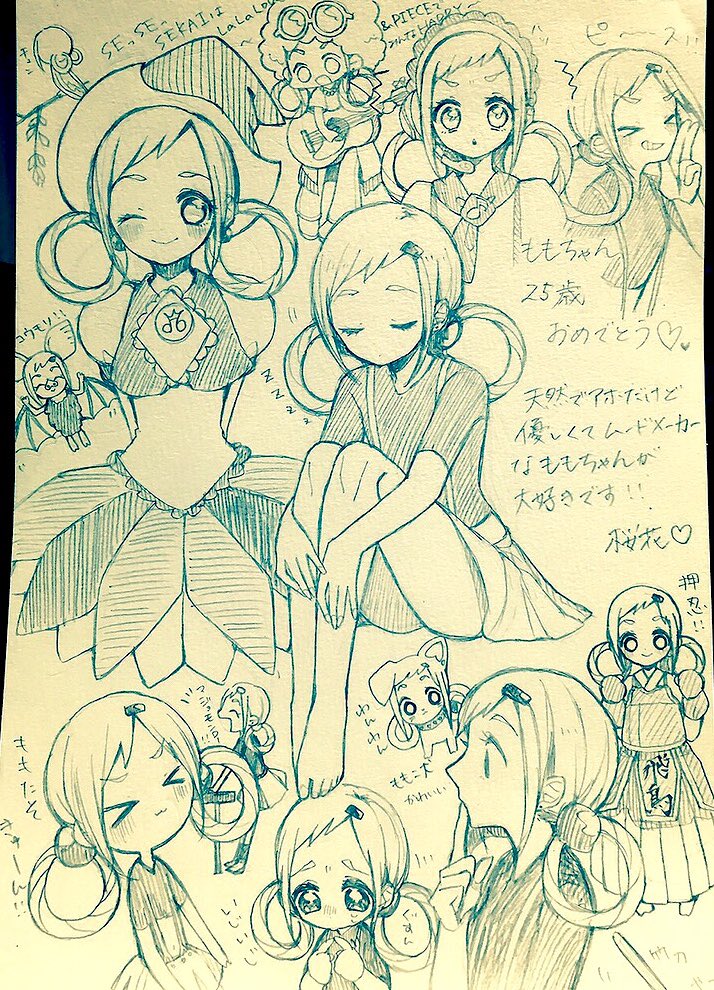 SEっSEっ
SEKAIは
LaLaLOVE
&PIECEで
HAPPY~
ピース!!
ももちゃん
25歳
おめでとう♡
天然でアホだけど
優しくてムードメーカー
なももちゃんが
大好きです!!
桜花♡
コウモリ!!
ZZZZ
押忍!!
飛鳥
わんわん
ももこ犬
かわいい
ももたそ
きゅーん!!
いじいじ
ぐすん
竹刀